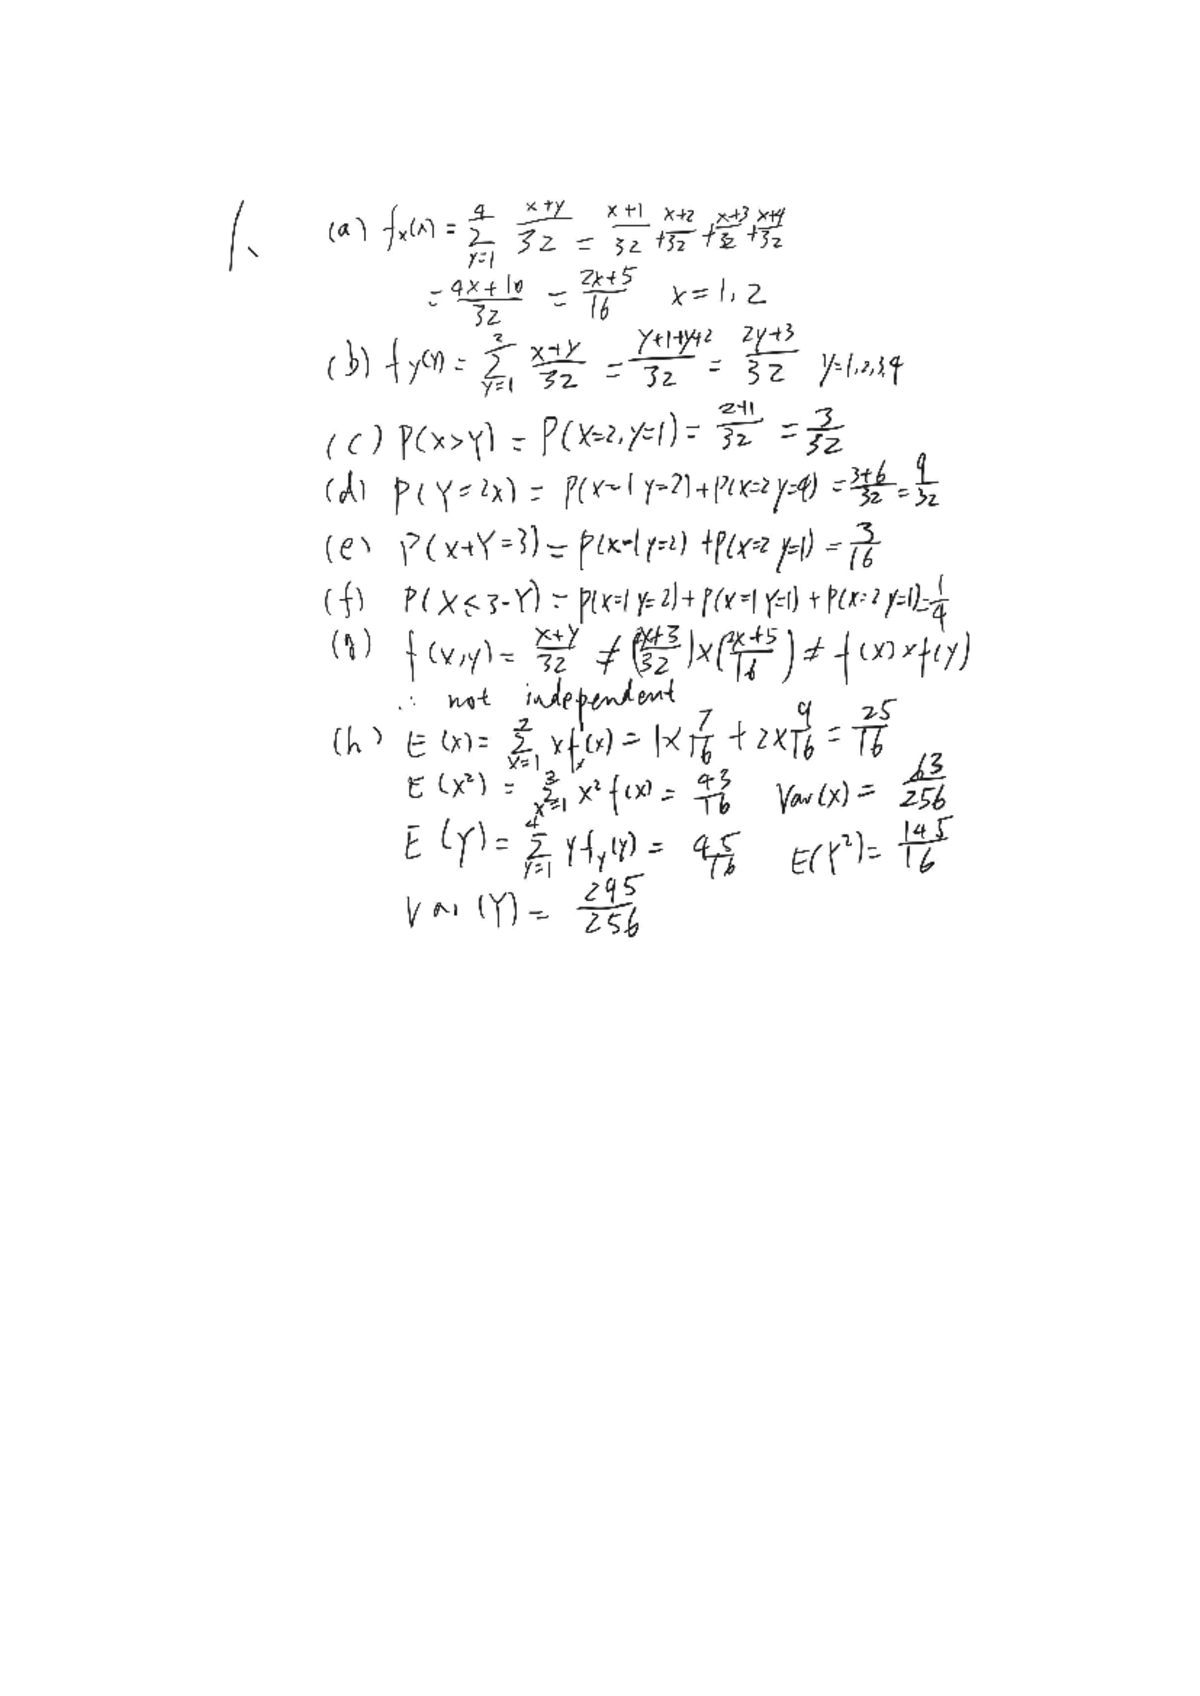 1、 (a) fx(x) = 4Σy=1 x+y/32 = x+1/32 + x+2/32 + x+3/32 + x+4/32
= 4x+10/32 = 2x+5/16 x=1,2
(b) fy(y) = 2Σy=1 x+y/32 = y+1+y+2/32 = 2y+3/32 y=1,2,3,4
(c) P(x>y) = P(x=2,y=1) = 2+1/32 = 3/32
(d) P(Y=2x) = P(x=1 y=2)+P(x=2 y=4) = 3+6/32 = 9/32
(e) P(x+Y=3) = P(x=1 y=2) +P(x=2 y=1) = 3/16
(f) P(X≤3-Y) = P(x=1 y=2)+P(x=1 y=1)+P(x=2 y=1) = 1/4
(g) f(x,y) = x+y/32 ≠ (2x+3/32)×(2x+5/16) ≠ f(x)×f(y)
∴ not independent
(h) E(x) = 2Σx=1 xfx(x) = 1×7/16 + 2×9/16 = 25/16
E(x²) = 2Σx=1 x²f(x) = 43/16 Var(x) = 63/256
E(y) = 4Σy=1 yfy(y) = 45/16 E(Y²) = 145/16
Var(Y) = 295/256